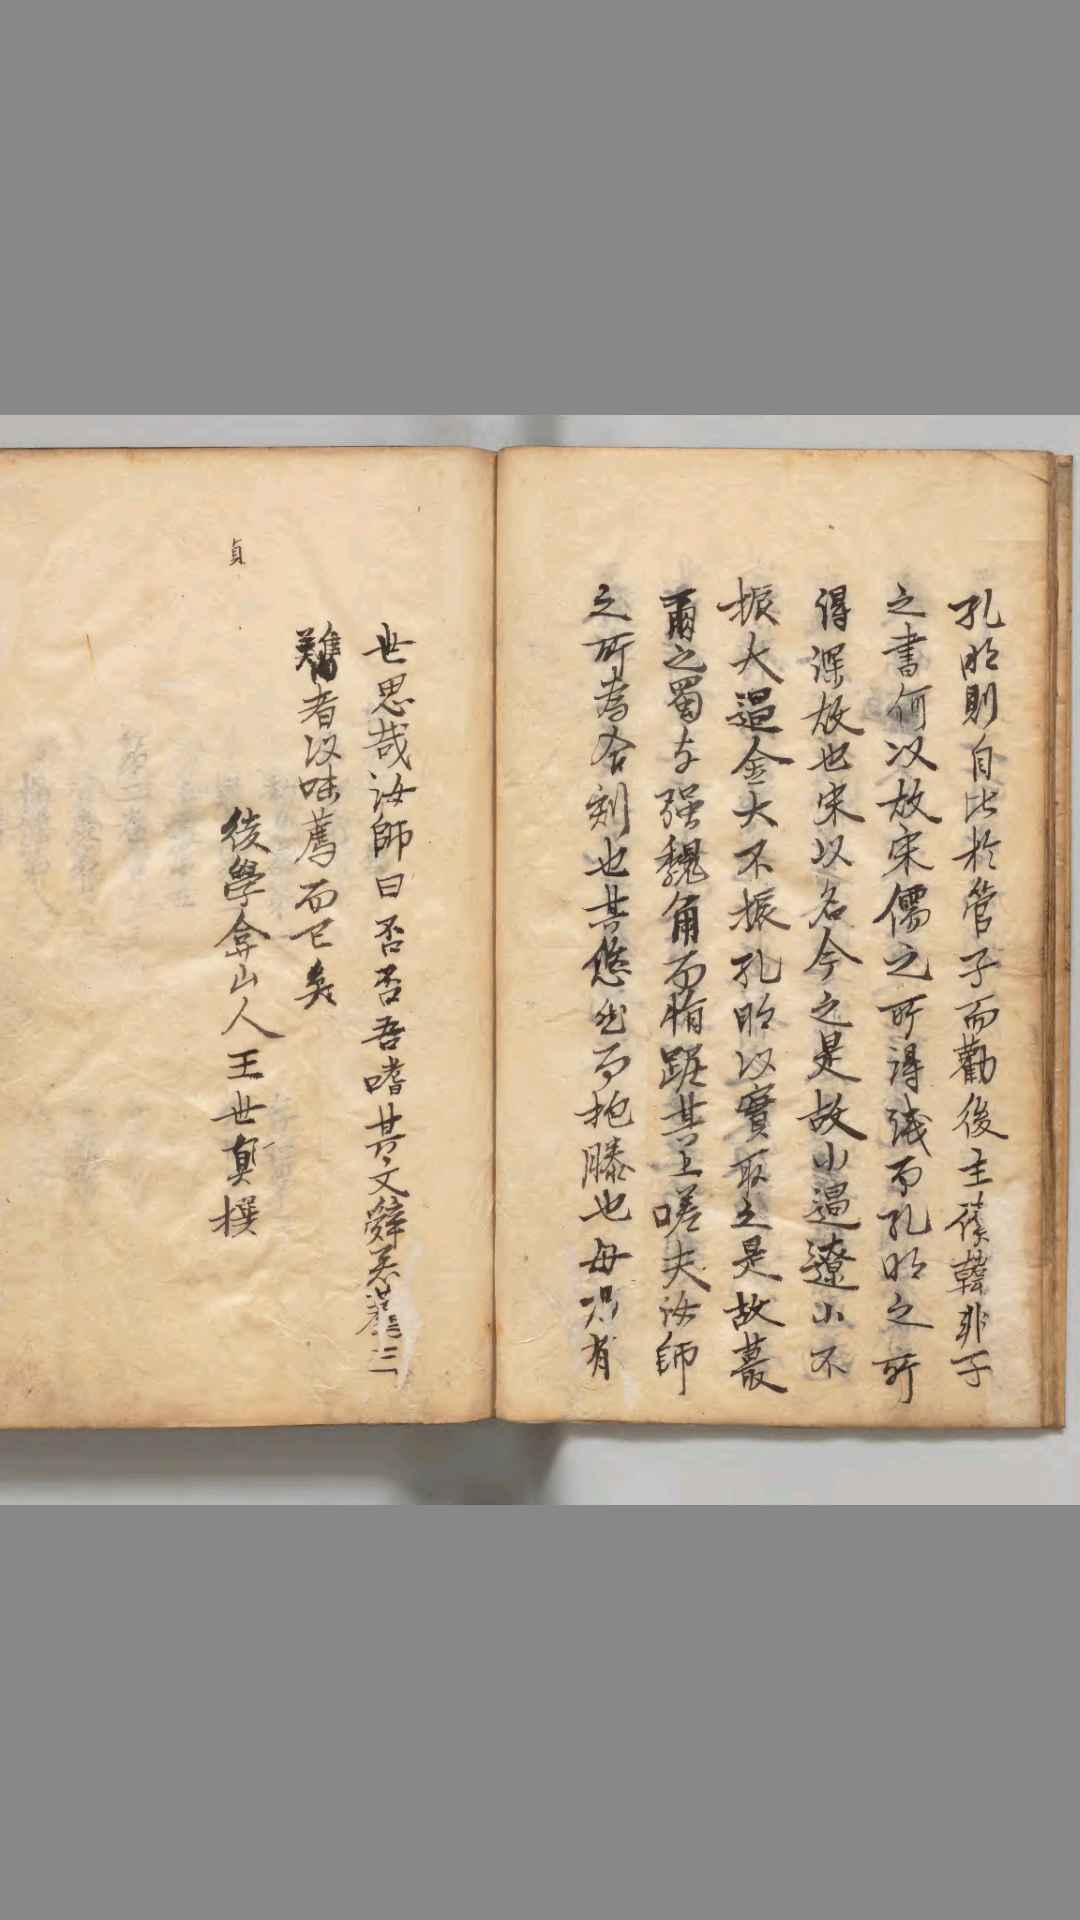 孔明則自比於管子而勸後主讀韓非子
之書何以故宋儒之所得淺而孔明之所
得深故也宋以名今之是故小逼遼小不
振大逼金大不振孔明以實取之是故蕞
爾之蜀与强魏角而惰踞其上嗟夫汝師
之所為合刻也其悠然而抱膝也毋乃有
世思哉汝師曰否否吾嗜其文辭
難者以味薦而已矣
後學弇山人王世貞撰
貞